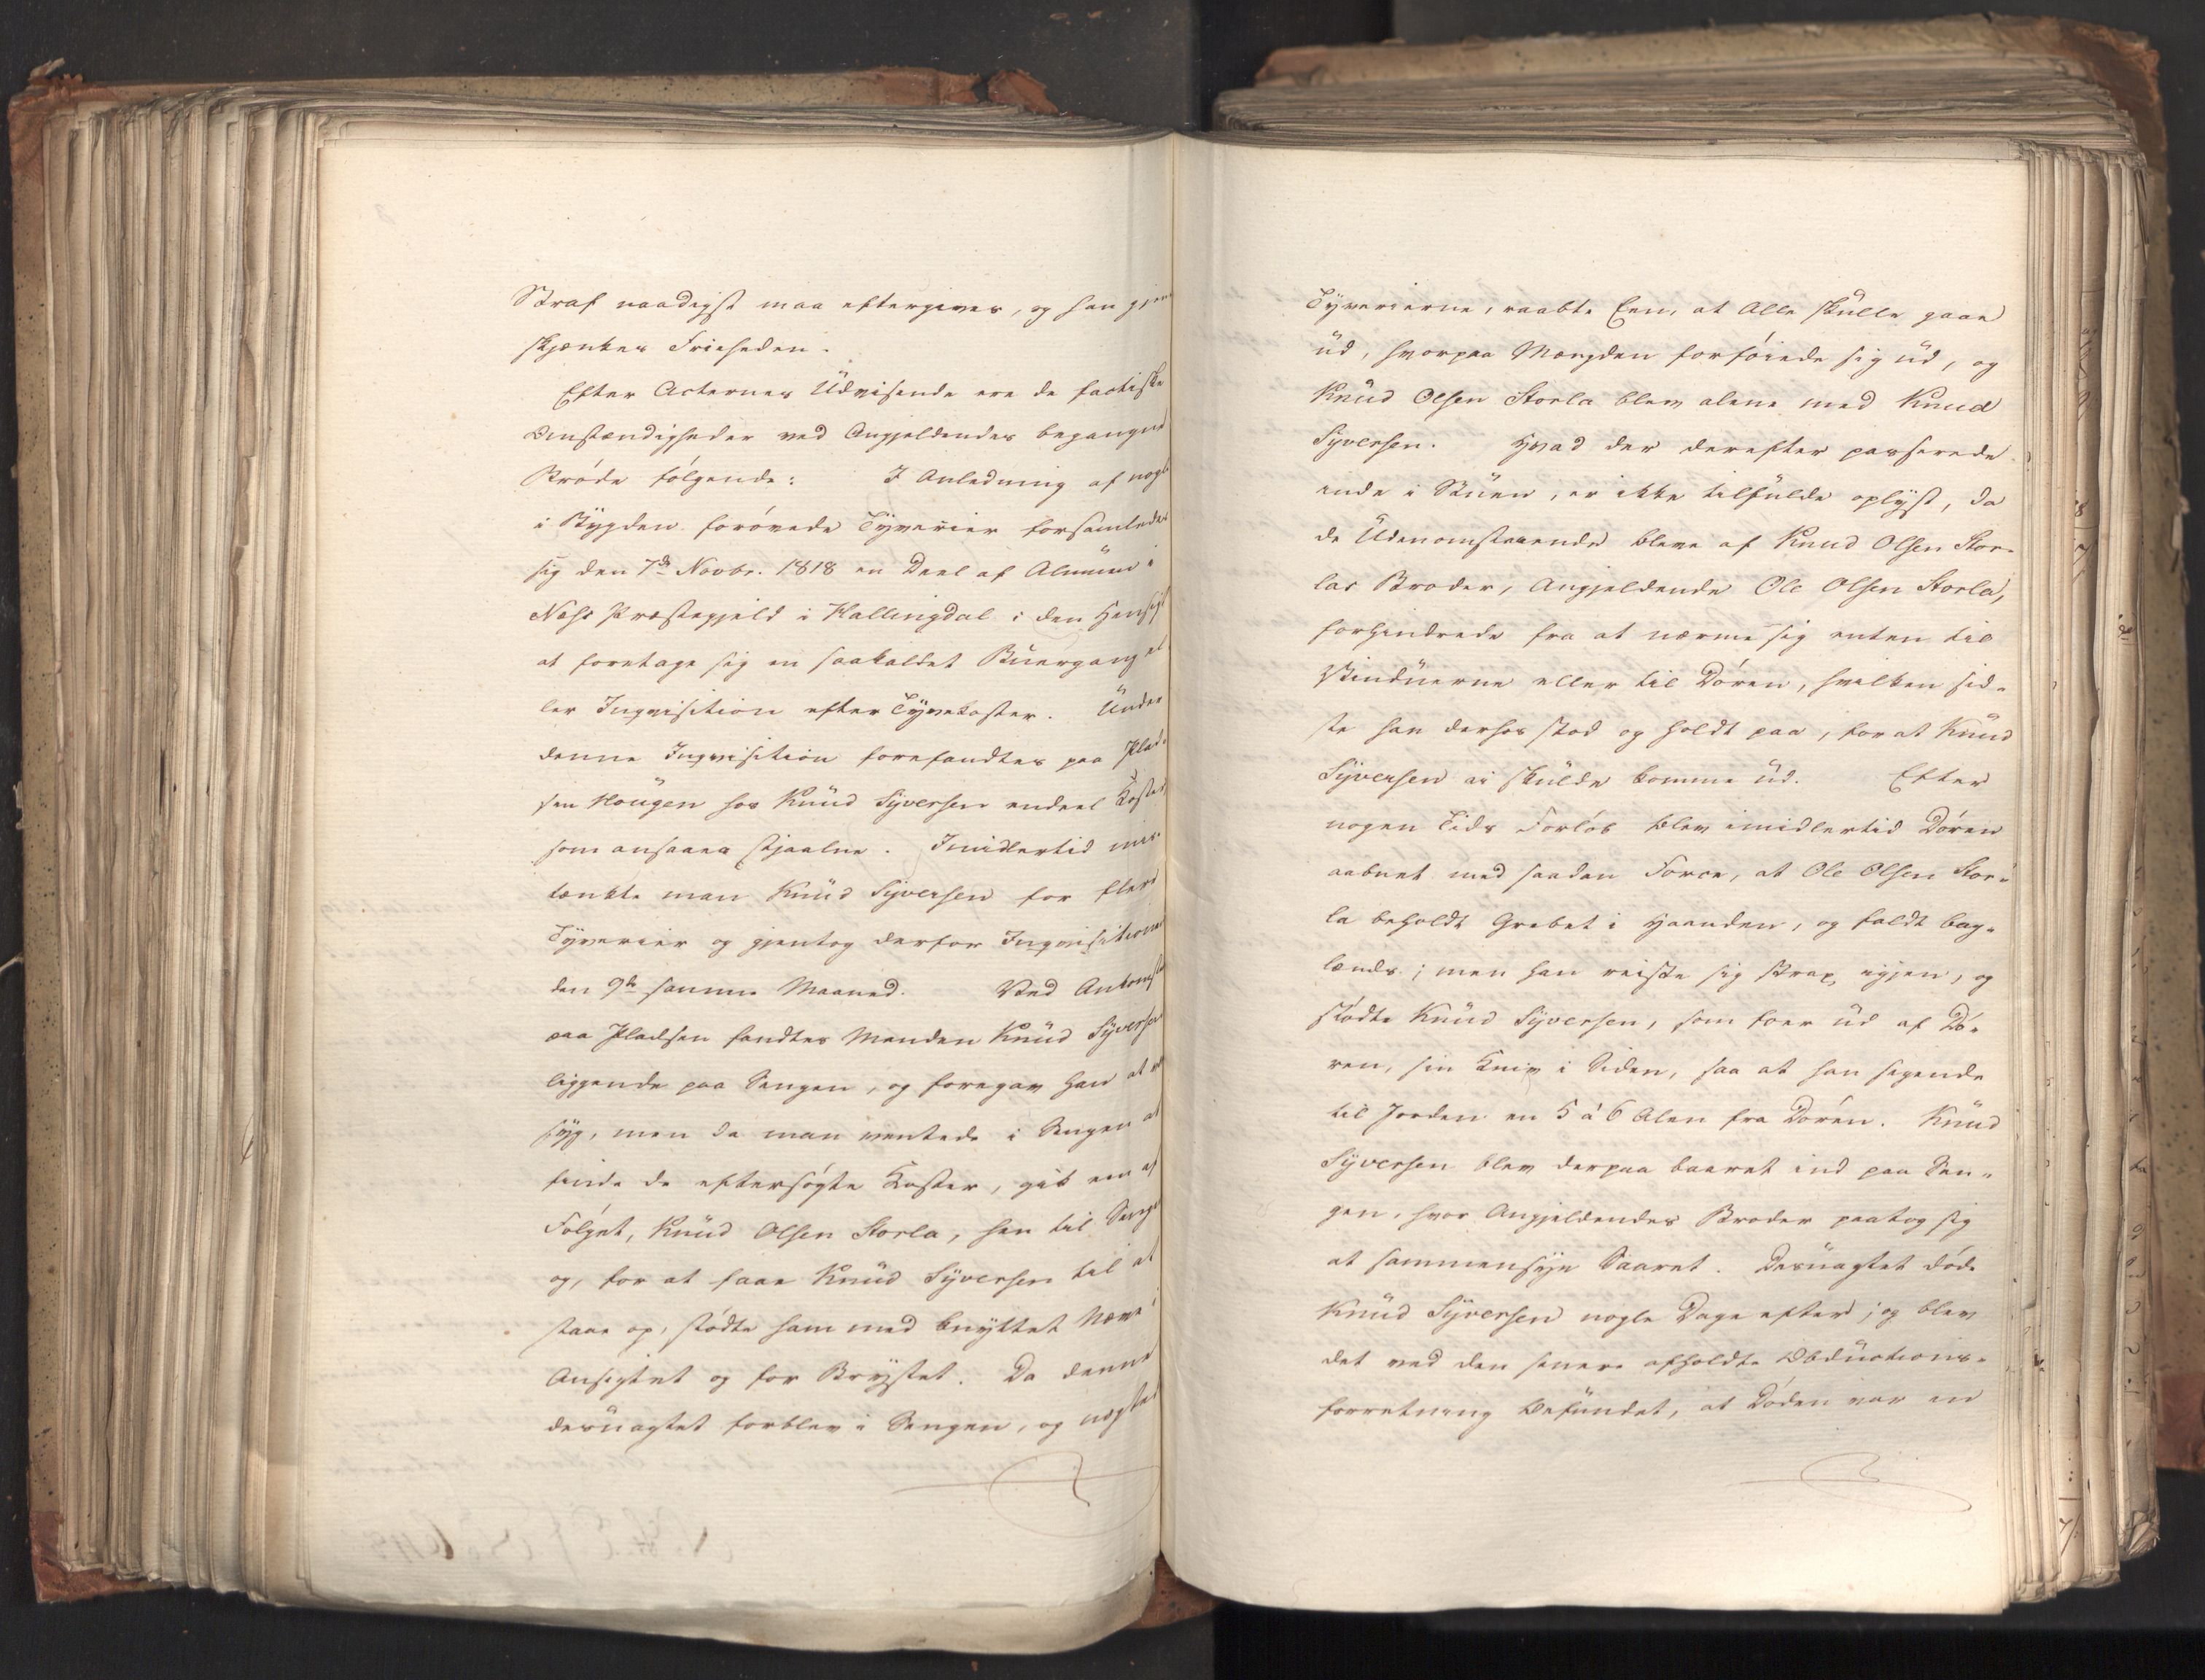 Straf naadigst maa eftergives, og han gjen
skjænkes Friheden.
Efter Acternes Udvisende ere de factiske
Omstændigheder ved Angjeldendes begangne
Brøde følgende: I Anledning af nogle
i Bygden forøvede Tyverier forsamledes
sig den 7de Novbr. 1818 en Deel af Almuen i
Næss Præstegjeld i Hallingdal i den Hensigt
at foretage sig en saakaldet Buergang el
ler Inqvisition efter Tyvekoster. Under
denne Inqvisition forefandtes paa Plad-
sen Hougen hos Knud Syversen endeel Koster
som ansaaes stjaalne. Imidlertid mis-
tænkte man Knud Syversen for flere
Tyverier og gjentog derfor Inqvisitionen
den 9de samme Maaned. Ved Ankomsten
paa Pladsen fandtes Manden Knud Syversen
liggende paa Sengen, og foregav han at være
syg, men da man ventede i Sengen at
finde de eftersøgte Koster, gik en af
Følget, Knud Olsen Storla, hen til Sengen
og, for at faae Knud Syversen til at
staae op, stødte ham med knyttet Næve i
Ansigtet og for Brystet. Da denne
desuagtet forblev i Sengen, og nægtede
Tyverierne, raabte Een, at Alle skulle gaae
ud, hvorpaa Mængden forføiede sig ud, og
Knud Olsen Storla blev alene med Knud
Syversen. Hvad der derefter passerede
inde i Stuen, er ikke tilfulde oplyst, da
de Udenomstaaende bleve af Knud Olsen Stor-
las Broder, Angjeldende Ole Olsen Storla,
forhindrede fra at nærme sig enten til
Vinduerne eller til Døren, hvilken sid-
ste han derhos stod og holdt paa, for at Knud
Syversen ei skulde komme ud. Efter
nogen Tids Forløb blev imidlertid Døren
aabnet med saadan Force, at Ole Olsen Stor-
la beholdt Grebet i Haanden, og faldt bag-
lænds; men han reiste sig strax igjen, og
stødte Knud Syversen, som foer ud af Dø-
ren, sin Kniv i Siden, saa at han segnede
til Jorden en 5 à 6 Alen fra Døren. Knud
Syversen blev derpaa baaret ind paa Sen-
gen, hvor Angjeldendes Broder paatog sig
at sammensye Saaret. Desuagtet døde
Knud Syversen nogle Dage efter; og blev
det ved den senere afholdte Obductions-
forretning befundet, at Døden var en